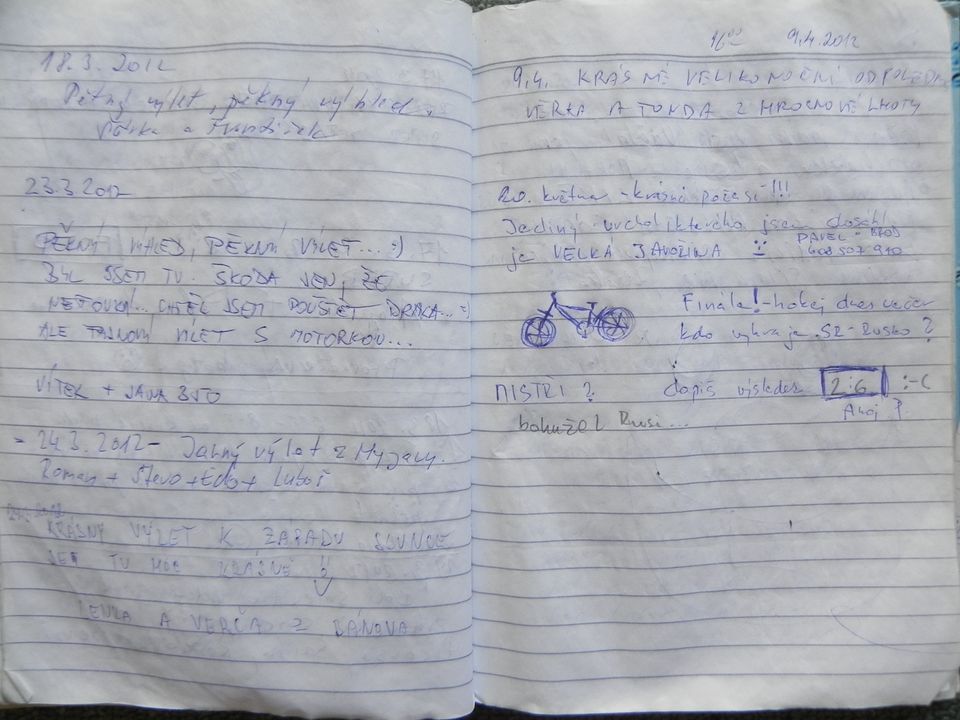 18.3. 2012
Pěkný výlet, pěkný výhled.
a František
23.3.2012
PĚKNÝ VÝHLED, PĚKNÝ VÝLET... :)
BYL JSEM TU. ŠKODA JEN, ŽE
NEFOUKÁ... CHTĚL JSEM POUŠTĚT DRAKA... =)
ALE VÝLET S MOTORKOU...
VÍTEK + JANA
= 24.3. 2012 - výlet z Myjavy.
Roman + Števo + Edo + Luboš
KRÁSNÝ VÝLET K ZÁPADU SLUNCE
JE TU MOC KRÁSNĚ
LENKA A VERČA Z BÁNOVA
16⁰⁰ 9.4.2012
9.4. KRÁSNÉ VELIKONOČNÍ ODPOLEDNE
VĚRKA A TONDA Z HROZNOVÉ LHOTY
20. května - krásné počasí !!!
Jediný vrchol kterého jsem dosáhl
je VELKÁ JAVOŘINA
PAVEL - BROD
608 507 910
Finále! - hokej dnes večer
kdo vyhraje. SR - Rusko?
MISTŘI? dopiš výsledek 2:6 :-(
Ahoj
bohužel Rusi...